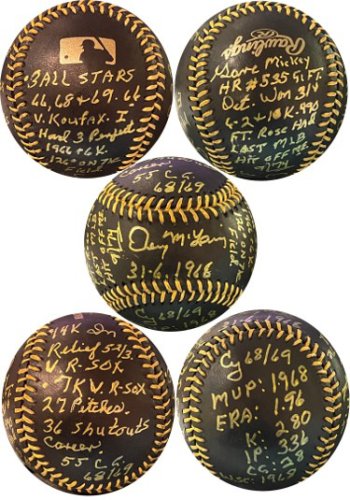 3 ALL STARS
66, 68 + 69. 66
V. Koufax. I
Had 3 Perfect
1966 + 6K.
126° ON THE
Field
Rawlings
Gave Mickey
HR # 535 91 FT.
Det. Won 31
6-2 + 10K. 490
FT. Rose Had
LAST MLB
Hit OFF ME
9/74
Career
55 C.G.
68/69
Denny McLain
31-6. 1968
14K In
Relief 5 2/3.
V. R-SOX
7K V. R-SOX
27 Pitches.
36 Shutouts
Career
55 C.G.
68/69
31-6. 1968
Cy 68/69
MVP: 1968
ERA: 1.96
K: 280
IP: 336
CG: 28
WSC: 1968